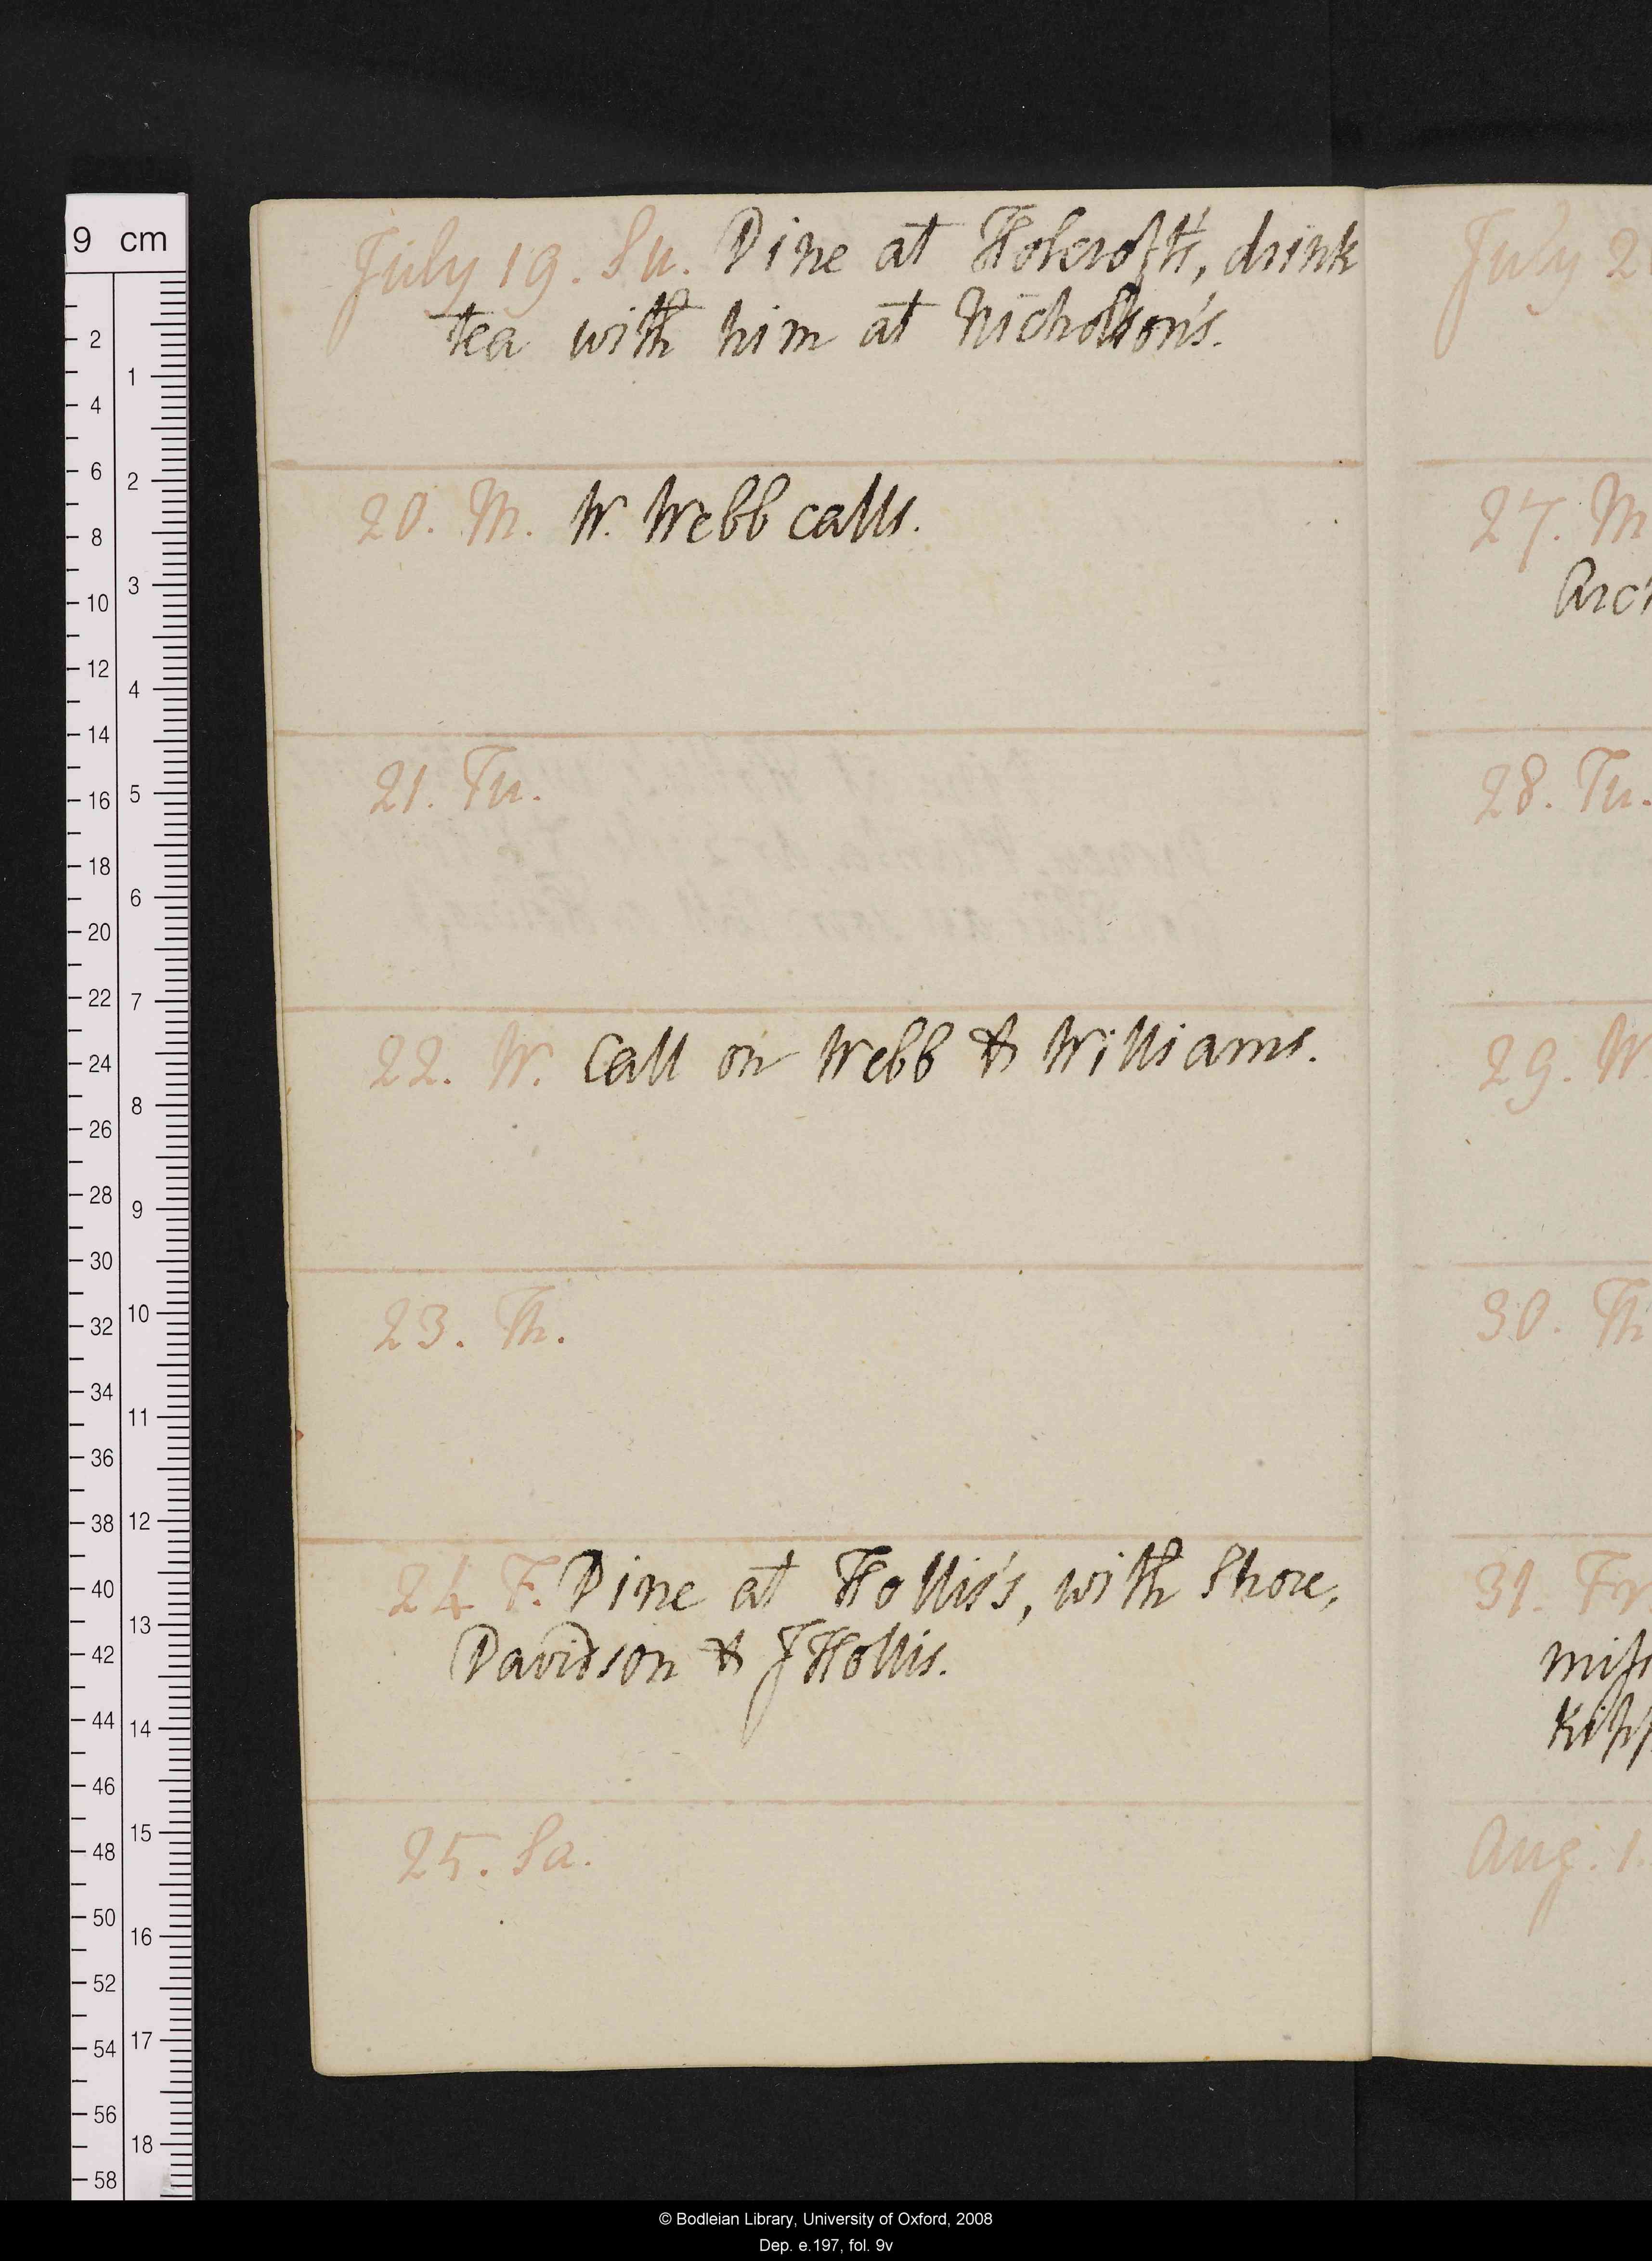 July 19. Su. Dine at Holcroft's, drink
tea with him at Nicholson's.
20. M. W. Webb calls.
21. Tu.
22. W. Call on Webb & Williams.
23. Th.
24 F. Dine at Hollis's, with Shore,
Davidson & J Hollis.
25. Sa.
July 2
27. M
28. Tu.
29. W
30. Th
31. Fr
Kipp
Aug. 1.
9 cm
2
4
6
8
10
12
14
16
18
20
22
24
26
28
30
32
34
36
38
40
42
44
46
48
50
52
54
56
58
1
2
3
4
5
6
7
8
9
10
11
12
13
14
15
16
17
18
© Bodleian Library, University of Oxford, 2008
Dep. e.197, fol. 9v